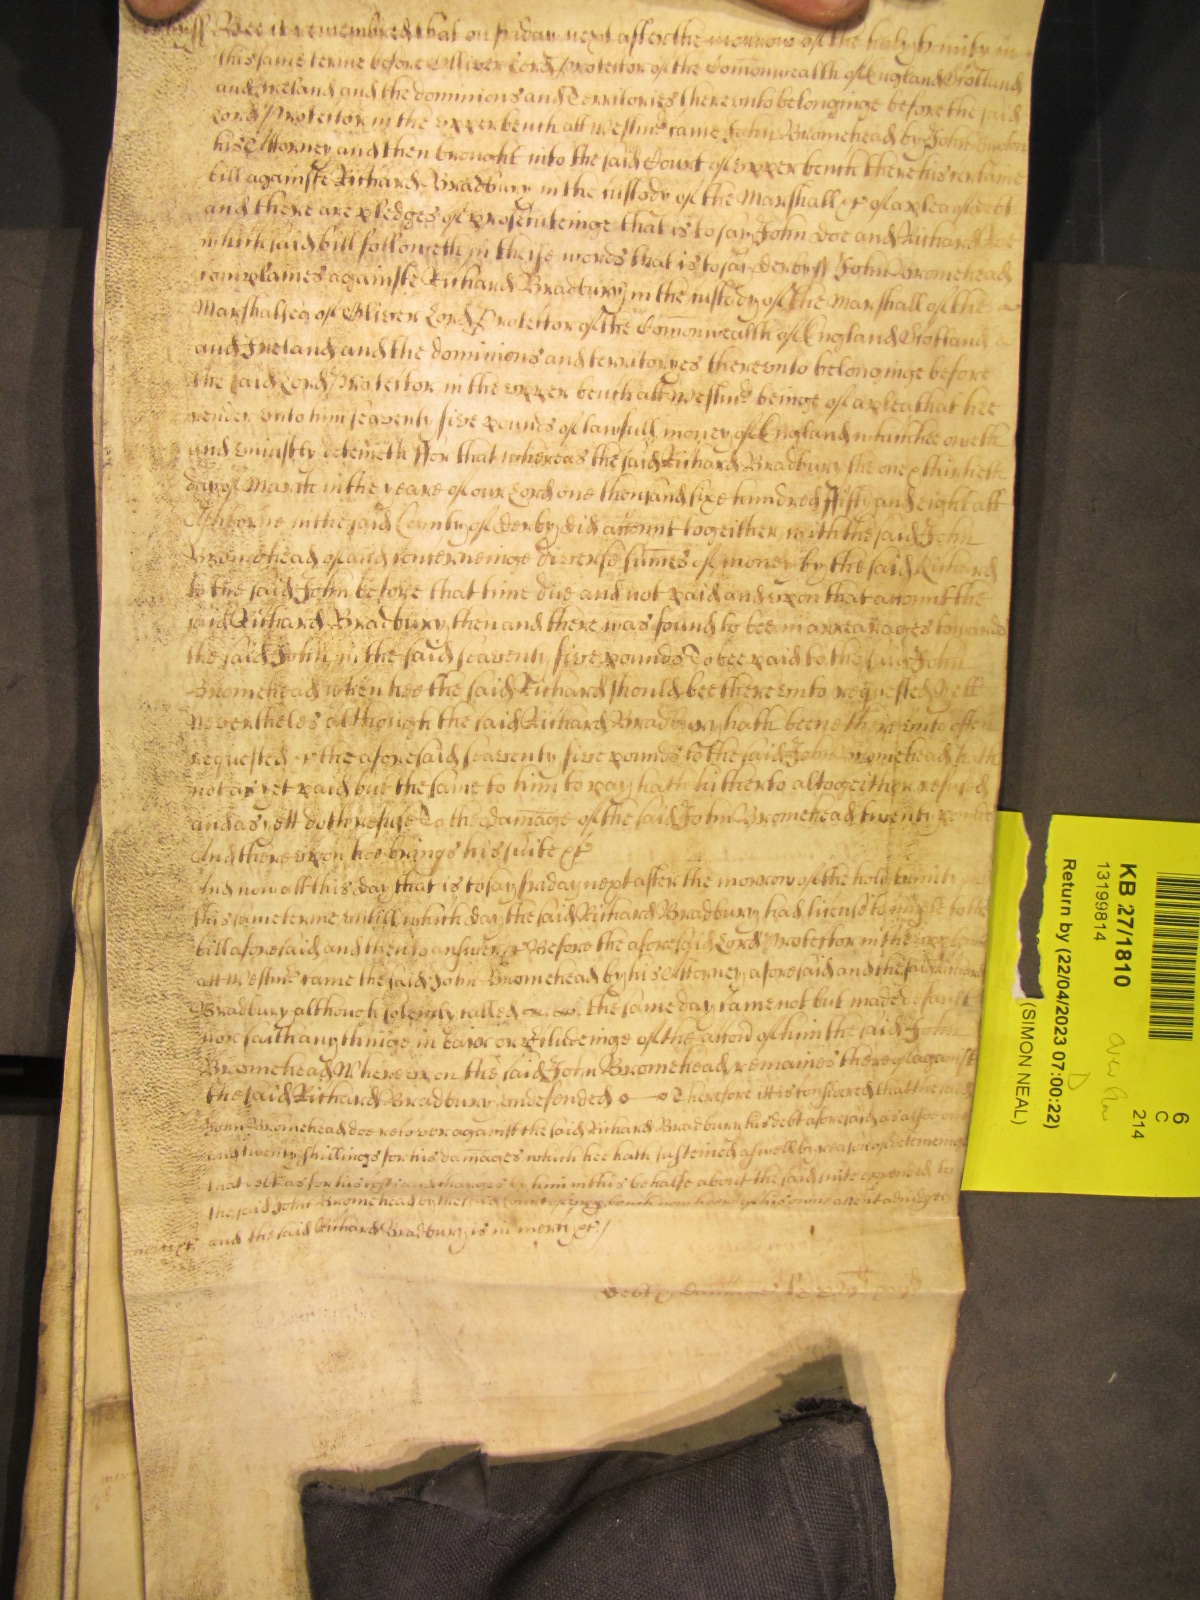 derbyss Bee it remembred that on friday next after the morrow of the holy trinity in
this same terme before Olliver Lord Protector of the Comonwealth of England Scotland
and Ireland and the dominions and Territories thereunto belonginge before the said
Lord Protector in the upper bench att Westmr came John Bromehead by John
his Attorney and then brought into the said Court of upper bench there his certaine
bill againste Richard Bradbury in the custody of the Marshall &c of a plea of debt
and there are pledges of prosecuteinge that is to say John Doe and Richard Roe
which said bill followeth in theise words that is to say derbyss John Bromehead
complaines againste Richard Bradbury in the custody of the Marshall of the
Marshalsea of Oliver Lord Protector of the Comonwealth of England Scotland
and Ireland and the dominions and territoryes thereunto belonginge before
the said Lord Protector in the upper bench att Westmr beinge of a plea that hee
render unto him seaventy five pounds of lawfull money of England which hee oweth
and uniustly deteineth ffor that whereas the said Richard Bradbury the one & thirtieth
day of March in the yeare of our Lord one thousand sixe hundred ffifty and eight att
Ashborne in the said County of derby did accompt togeither with the said John
Bromehead of and concerneinge diverse sumes of money by the said Richard
to the said John before that time due and not paid and upon that accompt the
said Richard Bradbury then and there was found to bee in arrearages towards
the said John in the said seaventy five pounds To bee paid to the said John
Bromehead when hee the said Richard should bee thereunto requested Yett
neverthelesse although the said Richard Bradbury hath beene thereunto often
requested &c the aforesaid seaventy five pounds to the said John Bromehead hath
not as yet paid but the same to him to pay hath hitherto altogeither refused
and as yett doth refuse To the damage of the said John Bromehead twenty pounds
And thereupon hee brings his suite &c
And now att this day that is to say friday next after the morrow of the holy trinity
this same terme untill which day the said Richard Bradbury had licence to imparle to the
bill aforesaid and then to answer &c Before the aforesaid Lord Protector in the upper bench
att Westmr came the said John Bromehead by his Attorney aforesaid and the said Richard
Bradbury although solemly called the same day came not but made default
nor saith any thinge in barr or precludeinge of the accon of him the said John
Bromehead Whereupon the said John Bromehead remaines thereof against
the said Richard Bradbury undefended Therefore itt is considered that the said
John Bromehead doe recover against the said Richard Bradbury his debt aforesaid as alsoe
and twenty shillings for his damages which hee hath susteined aswell by reason of deteineinge
that debt as for his costs and charges by him in this behalfe about the said suite expended to
the said John Bromehead by the Court of upper bench here of his owne assent adiudged
and the said Richard Bradbury is in mercy &c
mercy &c
debt & damages
KB 27/1810
13199814
Return by (22/04/2023 07:00:22)
(SIMON NEAL)
6
C
214
D